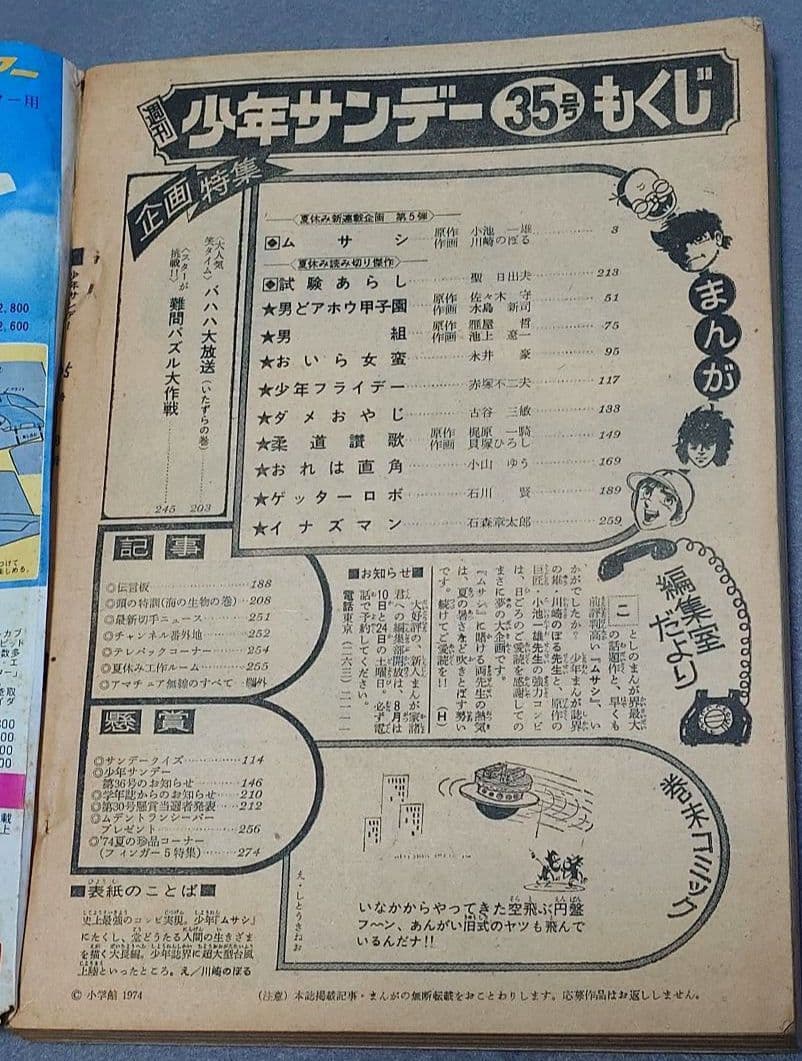 週刊 少年サンデー 35号 もくじ
企画特集
〈大人気笑タイム〉バハハ大放送(いたずらの巻)……203
〈スターが挑戦!!〉難問パズル大作戦……245
まんが
〈夏休み新連載企画 第5弾〉
◆ムサシ 原作 小池一雄 作画 川崎のぼる 3
〈夏休み読み切り傑作〉
◆試験あらし 聖日出夫 213
★男どアホウ甲子園 原作 佐々木守 作画 水島新司 51
★男組 原作 雁屋哲 作画 池上遼一 75
★おいら女蛮 永井豪 95
★少年フライデー 赤塚不二夫 117
★ダメおやじ 古谷三敏 133
★柔道讃歌 原作 梶原一騎 作画 貝塚ひろし 149
★おれは直角 小山ゆう 169
★ゲッターロボ 石川賢 189
★イナズマン 石森章太郎 259
記事
◎伝言板……188
◎頭の特訓(海の生物の巻)…208
◎最新切手ニュース……251
◎チャンネル番外地……252
◎テレパックコーナー……254
◎夏休み工作ルーム……255
◎アマチュア無線のすべて…欄外
懸賞
◎サンデークイズ……114
◎少年サンデー
第36号のお知らせ……146
◎学年誌からのお知らせ……210
◎第30号懸賞当選者発表……212
◎ムデントランシーバー
プレゼント……256
◎'74夏の珍品コーナー
(フィンガー5特集)……274
編集室だより
ことしのまんが界最大
の話題作と、早くも
前評判高い『ムサシ』、い
かがでしたか? 少年まんが誌界
の雄・川崎のぼる先生と、原作の
巨匠・小池一雄先生の強力コンビ
は、日ごろのご愛読を感謝しての
まさに夢の大企画です。
『ムサシ』に賭ける両先生の熱気
は、夏の暑さをど吹きとばす勢い
です。続けてご愛読を!! (H)
■お知らせ■
大好評の、新人まんが家諸
君への編集部開放は、8月は
10日と24日の土曜日。必ず電
話で予約してください。
電話東京(二六三)二一一一
巻末コミック
え・しとうきねお
いなかからやってきた空飛ぶ円盤
フ〜ン、あんがい旧式のヤツも飛んで
いるんだナ!!
■表紙のことば■
史上最強のコンビ実現。少年『ムサシ』
にたくし、堂どうたる人間の生きざま
を描く大長編。少年誌界に超大型台風
上陸といったところ。え/川崎のぼる
© 小学館 1974
(注意) 本誌掲載記事・まんがの無断転載をおことわりします。応募作品はお返ししません。